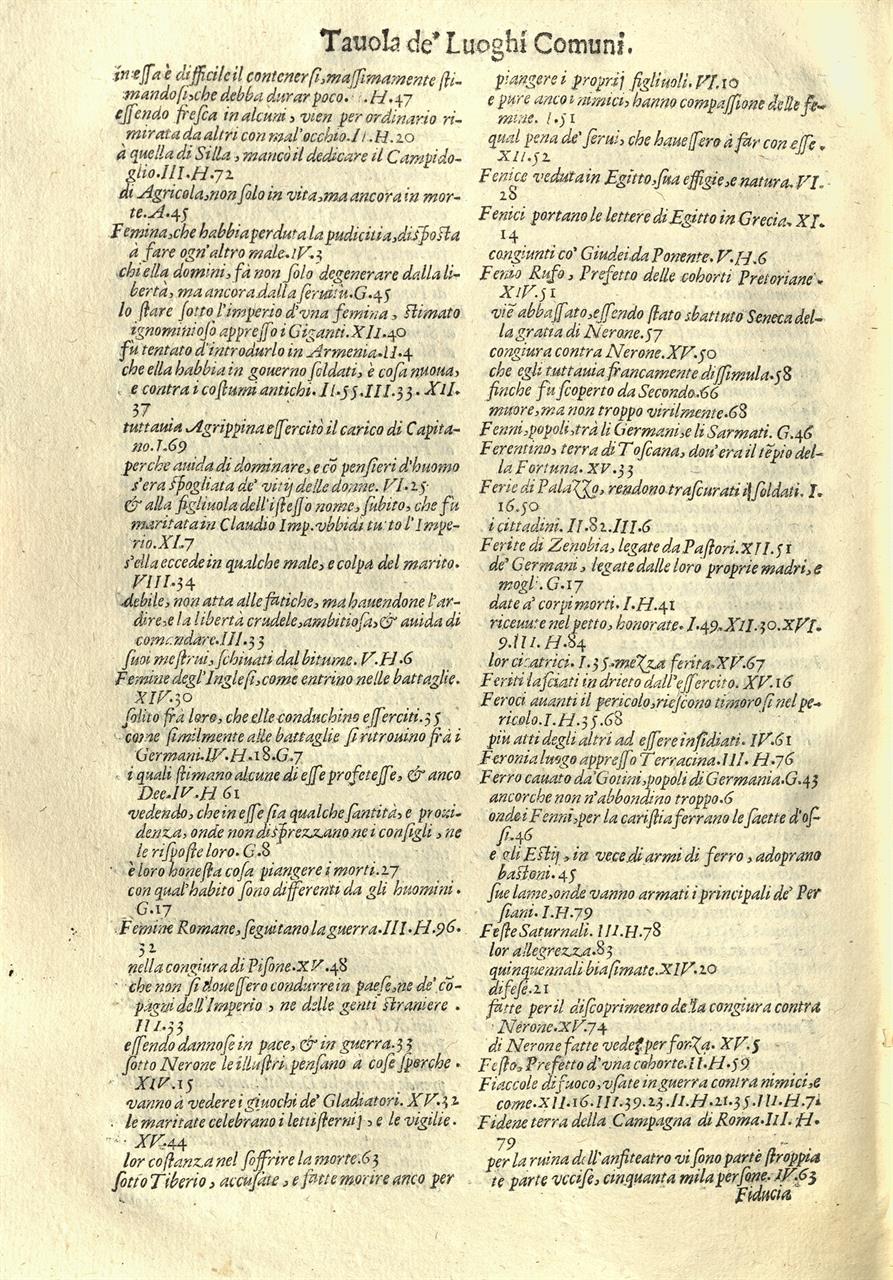 Tauola de' Luoghi Comuni.
in essa è difficile il contenersi, massimamente sti-
mandosi, che debba durar poco. H.47
essendo fresca in alcuni, vien per ordinario ri-
mirata da altri con mal'occhio. II. H.20
à quella di Silla, mancò il dedicare il Campido-
glio. III. H.72
di Agricola, non solo in vita, ma ancora in mor-
te. A.45
Femina, che habbia perduta la pudicitia, disposta
à fare ogn'altro male. IV.3
chi ella domini, fà non solo degenerare dalla li-
bertà, ma ancora dalla seruitù. G.45
lo stare sotto l'imperio d'vna femina, stimato
ignominioso appresso i Giganti. XII.40
fu tentato d'introdurlo in Armenia. II.4
che ella habbia in gouerno soldati, è cosa nuoua,
e contra i costumi antichi. II.55. III.33. XII.
37
tuttauia Agrippina essercitò il carico di Capita-
no. I.69
perche auida di dominare, e cõ pensieri d'huomo
s'era spogliata de' vitij delle donne. VI.25
& alla figliuola dell'istesso nome, subito, che fu
maritata in Claudio Imp. vbbidì tutto l'Impe-
rio. XI.7
s'ella eccede in qualche male, e colpa del marito.
VIII.34
debile, non atta alle fatiche, ma hauendone l'ar-
dire, e la libertà crudele, ambitiosa, & auida di
comandare. III.33
suoi mestrui, schiuati dal bitume. V. H.6
Femine degl'Inglesi, come entrino nelle battaglie.
XIV.30
solito frà loro, che elle conduchino esserciti. 35
come similmente alle battaglie si ritrouino frà i
Germani. IV. H.18. G.7
i quali stimano alcune di esse profetesse, & anco
Dee. IV. H 61
vedendo, che in esse sia qualche santità, e proui-
denza, onde non disprezzano ne i consigli, ne
le risposte loro. G.8
è loro honesta cosa piangere i morti. 27
con qual'habito sono differenti da gli huomini.
G.17
Femine Romane, seguitano la guerra. III. H.96.
32
nella congiura di Pisone. XV.48
che non si douessero condurre in paese, ne de' cõ-
pagni dell'Imperio, ne delle genti straniere.
III.33
essendo dannose in pace, & in guerra. 33
sotto Nerone le illustri, pensano a cose sporche.
XIV.15
vanno à vedere i giuochi de' Gladiatori. XV.32
le maritate celebrano i lettisternij, e le vigilie.
XV.44
lor costanza nel soffrire la morte. 63
sotto Tiberio, accusate, e fatte morire anco per
piangere i proprij figliuoli. VI.10
e pure anco i nimici, hanno compassione delle fe-
mine. I.51
qual pena de' serui, che hauessero à far con esse.
XII.52
Fenice veduta in Egitto, sua effigie, e natura. VI.
28
Fenici portano le lettere di Egitto in Grecia. XI.
14
congiunti co' Giudei da Ponente. V. H.6
Fenio Rufo, Prefetto delle cohorti Pretoriane.
XIV.51
viẽ abbassato, essendo stato sbattuto Seneca del-
la gratia di Nerone. 57
congiura contra Nerone. XV.50
che egli tuttauia francamente dissimula. 58
finche fu scoperto da Secondo. 66
muore, ma non troppo virilmente. 68
Fenni, popoli, trà li Germani, e li Sarmati. G.46
Ferentino, terra di Toscana, dou'era il tẽpio del-
la Fortuna. XV.33
Ferie di Palazzo, rendono trascurati i soldati. I.
16.50
i cittadini. II.82. III.6
Ferite di Zenobia, legate da Pastori. XII.51
de' Germani, legate dalle loro proprie madri, e
mogli. G.17
date a' corpi morti. I. H.41
riceuute nel petto, honorate. I.49. XII.30. XVI.
9. III. H.84
lor cicatrici. I.35. mezza ferita. XV.67
Feriti lasciati in drieto dall'essercito. XV.16
Feroci auanti il pericolo, riescono timorosi nel pe-
ricolo. I. H.35.68
piu atti degli altri ad essere insidiati. IV.61
Feronia luogo appresso Terracina. III. H.76
Ferro cauato da' Gotini, popoli di Germania. G.43
ancorche non n'abbondino troppo. 6
onde i Fenni, per la caristia ferrano le saette d'os-
si. 46
e gli Estij, in vece di armi di ferro, adoprano
bastoni. 45
sue lame, onde vanno armati i principali de' Per
siani. I.H.79
Feste Saturnali. III.H.78
lor allegrezza. 83
quinquennali biasimate. XIV.20
difese. 21
fatte per il discoprimento della congiura contra
Nerone. XV.74
di Nerone fatte veder per forza. XV.5
Festo, Prefetto d'vna cohorte. II.H.59
Fiaccole di fuoco, vsate in guerra contra nimici, e
come. XII.16. III.39.23. II.H.21.35. III.H.71
Fidene terra della Campagna di Roma. III. H.
79
per la ruina dell'anfiteatro vi sono parte stroppia
te parte vccise, cinquanta mila persone. IV.63
Fiducia